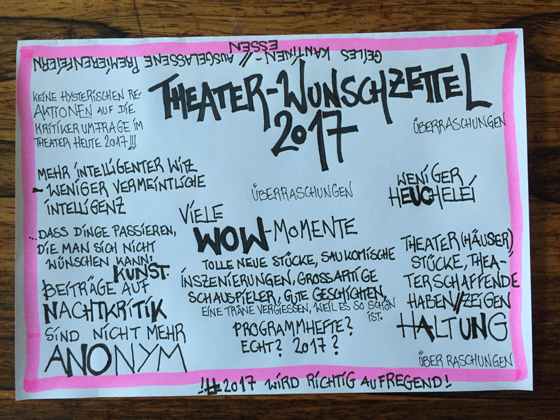 GEILES KANTINEN- // AUSGELASSENE PREMIERENFEIERN
ESSEN
THEATER-WUNSCHZETTEL
2017
KEINE HYSTERISCHEN RE-
AKTIONEN AUF DIE
KRITIKERUMFRAGE IM
THEATER HEUTE 2017!!!
ÜBERRASCHUNGEN
MEHR INTELLIGENTER WITZ
- WENIGER VERMEINTLICHE
INTELLIGENZ
ÜBERRASCHUNGEN
WENIGER
HEUCHELEI
...DASS DINGE PASSIEREN,
DIE MAN SICH NICHT
WÜNSCHEN KANN!
KUNST.
BEITRÄGE AUF
NACHTKRITIK
SIND NICHT MEHR
ANONYM
VIELE
WOW-MOMENTE
TOLLE NEUE STÜCKE, SAUKOMISCHE
INSZENIERUNGEN, GROSSARTIGE
SCHAUSPIELER, GUTE GESCHICHTEN,
EINE TRÄNE VERGIESSEN, WEIL ES SO SCHÖN
IST.
PROGRAMMHEFTE?
ECHT? 2017?
THEATER(HÄUSER)
STÜCKE, THEA-
TERSCHAFFENDE
HABEN//ZEIGEN
HALTUNG
ÜBERRASCHUNGEN
!#2017 WIRD RICHTIG AUFREGEND!